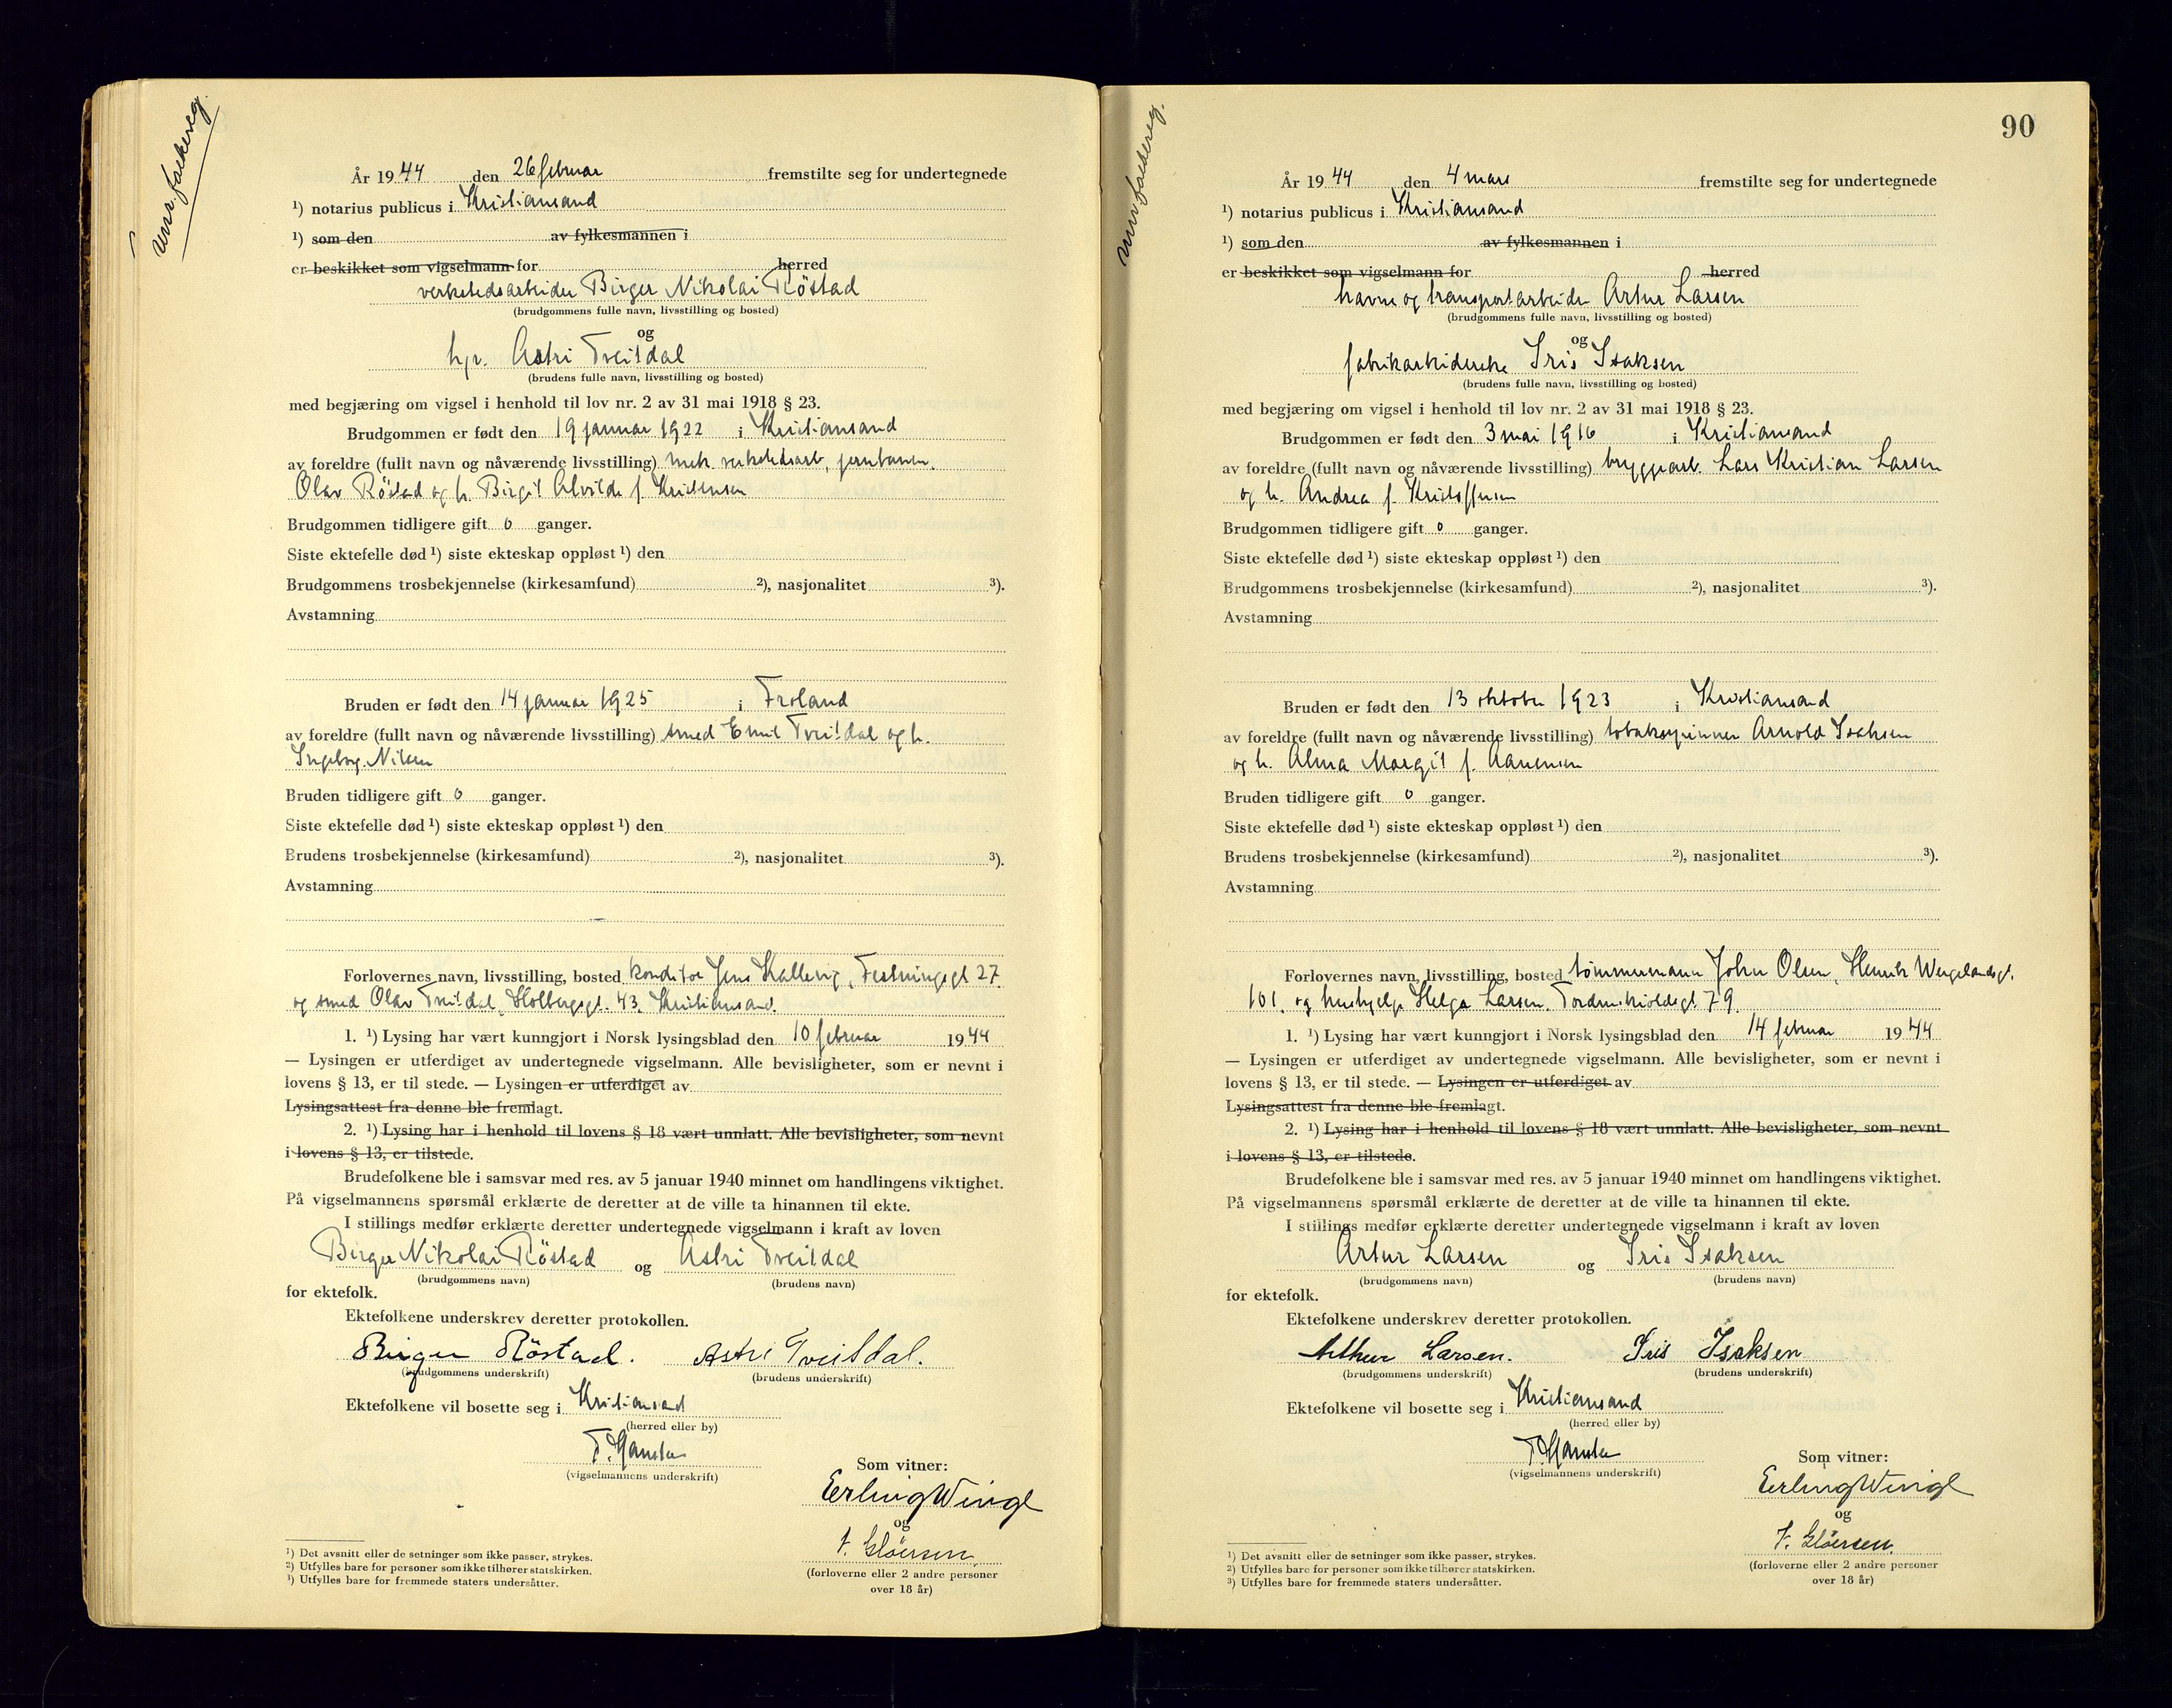 År 1944 den 26 februar fremstilte seg for undertegnede
¹) notarius publicus i Kristiansand
¹) som den av fylkesmannen i
er beskikket som vigselmann for herred
verkstedsarbeider Birger Nikolai Röstad
(brudgommens fulle navn, livsstilling og bosted)
og
hpr. Astri Tveitdal
(brudens fulle navn, livsstilling og bosted)
med begjæring om vigsel i henhold til lov nr. 2 av 31 mai 1918 § 23.
Brudgommen er født den 19 januar 1922 i Kristiansand
av foreldre (fullt navn og nåværende livsstilling) mek. verkstedsarb, jernbanen.
Olav Röstad og h. Birgit Alvilde f. Kristensen
Brudgommen tidligere gift 0 ganger.
Siste ektefelle død ¹) siste ekteskap oppløst ¹) den
Brudgommens trosbekjennelse (kirkesamfund) ²), nasjonalitet ³).
Avstamning
Bruden er født den 14 januar 1925 i Froland
av foreldre (fullt navn og nåværende livsstilling) smed Emil Tveitdal og h.
Ingeborg. Nilsen
Bruden tidligere gift 0 ganger.
Siste ektefelle død ¹) siste ekteskap oppløst ¹) den
Brudens trosbekjennelse (kirkesamfund) ²), nasjonalitet ³).
Avstamning
Forlovernes navn, livsstilling, bosted konditor Jens Kallevig, Festningsgt 27.
og smed Olav Tveitdal, Holbergsgt. 43. Kristiansand.
1. ¹) Lysing har vært kunngjort i Norsk lysingsblad den 10 februar 1944
— Lysingen er utferdiget av undertegnede vigselmann. Alle bevisligheter, som er nevnt i
lovens § 13, er til stede. — Lysingen er utferdiget av
Lysingsattest fra denne ble fremlagt.
2. ¹) Lysing har i henhold til lovens § 18 vært unnlatt. Alle bevisligheter, som nevnt
i lovens § 13, er tilstede.
Brudefolkene ble i samsvar med res. av 5 januar 1940 minnet om handlingens viktighet.
På vigselmannens spørsmål erklærte de deretter at de ville ta hinannen til ekte.
I stillings medfør erklærte deretter undertegnede vigselmann i kraft av loven
Birger Nikolai Röstad og Astri Tveitdal
(brudgommens navn) (brudens navn)
for ektefolk.
Ektefolkene underskrev deretter protokollen.
Birger Röstad. Astri Tveitdal.
(brudgommens underskrift) (brudens underskrift)
Ektefolkene vil bosette seg i Kristiansand
(herred eller by)
(vigselmannens underskrift)
Som vitner:
Erling Wingl
og
V. Gloersen.
(forloverne eller 2 andre personer
over 18 år)
¹) Det avsnitt eller de setninger som ikke passer, strykes.
²) Utfylles bare for personer som ikke tilhører statskirken.
³) Utfylles bare for fremmede staters undersåtter.
90
År 1944 den 4 mars fremstilte seg for undertegnede
¹) notarius publicus i Kristiansand
¹) som den av fylkesmannen i
er beskikket som vigselmann for herred
havne og transportarbeider Artur Larsen
(brudgommens fulle navn, livsstilling og bosted)
og
fabrikarbiderske Iris Isaksen
(brudens fulle navn, livsstilling og bosted)
med begjæring om vigsel i henhold til lov nr. 2 av 31 mai 1918 § 23.
Brudgommen er født den 3 mai 1916 i Kristiansand
av foreldre (fullt navn og nåværende livsstilling) bryggearb. Lars Kristian Larsen
og h. Andrea f. Kristoffersen
Brudgommen tidligere gift 0 ganger.
Siste ektefelle død ¹) siste ekteskap oppløst ¹) den
Brudgommens trosbekjennelse (kirkesamfund) ²), nasjonalitet ³).
Avstamning
Bruden er født den 13 oktober 1923 i Kristiansand
av foreldre (fullt navn og nåværende livsstilling) tobakspinner Arnold Isaksen
og h. Alma Margit f. Aanensen
Bruden tidligere gift 0 ganger.
Siste ektefelle død ¹) siste ekteskap oppløst ¹) den
Brudens trosbekjennelse (kirkesamfund) ²), nasjonalitet ³).
Avstamning
Forlovernes navn, livsstilling, bosted tömmermann John Olsen, Henrik Wergelandsgt.
101. og hushjelp Helga Larsen. Tordenskioldsgt 79.
1. ¹) Lysing har vært kunngjort i Norsk lysingsblad den 14 februar 1944
— Lysingen er utferdiget av undertegnede vigselmann. Alle bevisligheter, som er nevnt i
lovens § 13, er til stede. — Lysingen er utferdiget av
Lysingsattest fra denne ble fremlagt.
2. ¹) Lysing har i henhold til lovens § 18 vært unnlatt. Alle bevisligheter, som nevnt
i lovens § 13, er tilstede.
Brudefolkene ble i samsvar med res. av 5 januar 1940 minnet om handlingens viktighet.
På vigselmannens spørsmål erklærte de deretter at de ville ta hinannen til ekte.
I stillings medfør erklærte deretter undertegnede vigselmann i kraft av loven
Artur Larsen og Iris Isaksen
(brudgommens navn) (brudens navn)
for ektefolk.
Ektefolkene underskrev deretter protokollen.
Arthur Larsen. Iris Isaksen
(brudgommens underskrift) (brudens underskrift)
Ektefolkene vil bosette seg i Kristiansand
(herred eller by)
(vigselmannens underskrift)
Som vitner:
Erling Wingl
og
V. Gloersen.
(forloverne eller 2 andre personer
over 18 år)
¹) Det avsnitt eller de setninger som ikke passer, strykes.
²) Utfylles bare for personer som ikke tilhører statskirken.
³) Utfylles bare for fremmede staters undersåtter.